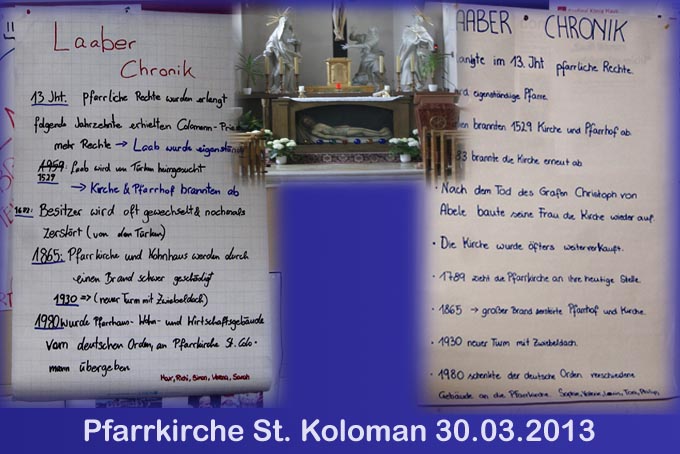 Laaber
Chronik
13 Jht. pfarrliche Rechte wurden erlangt
folgende Jahrzehnte erhielten Colomann-
mehr Rechte → Laab wurde eigenständig
1959 Laab wird von Türken heimgesucht
1529
→ Kirche & Pfarrhof brannten ab
Besitzer wird oft gewechselt & nochmals
zerstört (von den Türken)
1865: Pfarrkirche und Wohnhaus werden durch
einen Brand schwer geschädigt
1930 => (neuer Turm mit Zwiebeldach)
1980 wurde Pfarrhaus- Wohn- und Wirtschaftsgebäude
vom deutschen Orden, an Pfarrkirche St. Colo-
mann übergeben
Simon, Verena, Sarah
AABER · CHRONIK
langte im 13. Jht pfarrliche Rechte.
eigenständige Pfarre.
brannten 1529 Kirche und Pfarrhof ab.
83 brannte die Kirche erneut ab.
· Nach dem Tod des Grafen Christoph von
Abele baute seine Frau die Kirche wieder auf.
· Die Kirche wurde öfters weiterverkauft.
· 1789 zieht die Pfarrkirche an ihre heutige Stelle.
· 1865 → großer Brand zerstörte Pfarrhof und Kirche.
· 1930 neuer Turm mit Zwiebeldach.
· 1980 schenkte der deutsche Orden verschiedene
Gebäude an die Pfarrkirche. Sophie, Valerie, Tom, Philip
Pfarrkirche St. Koloman 30.03.2013